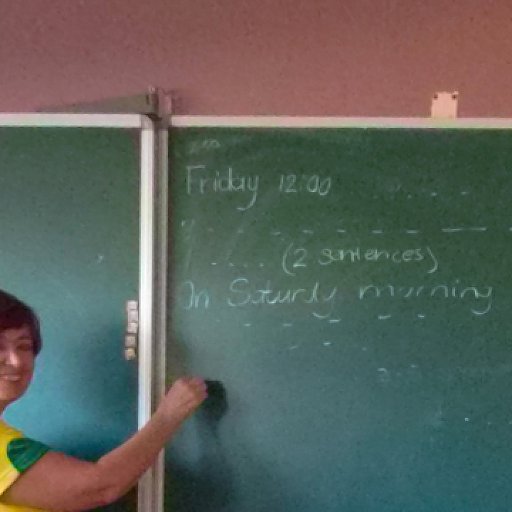 Friday 12:00
(2 sentences)
In Saturdy morning